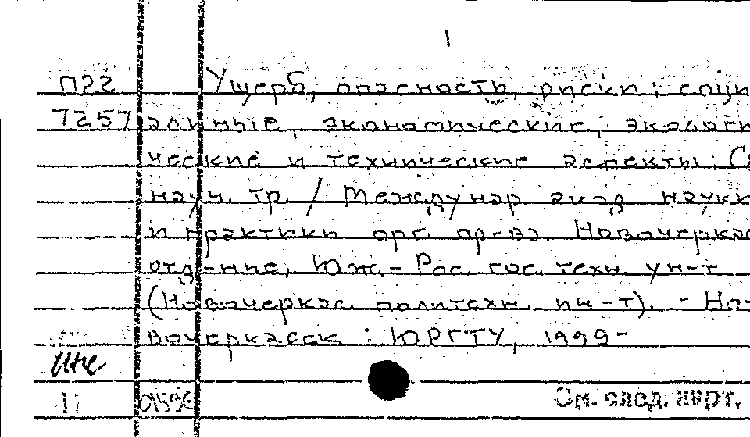 П22 Ущерб, опасность, риски: соци
7257 альные, экономические, экологи
ческие и технические аспекты: С
науч. тр. / Междунар. акад. наук
и практики орг. пр-ва. Новочеркас
отд-ние, Юж.-Рос. гос. техн. ун-т
(Новочеркас. политехн. ин-т). - Но
вочеркасск : ЮРГТУ, 1999-
См. след. карт.